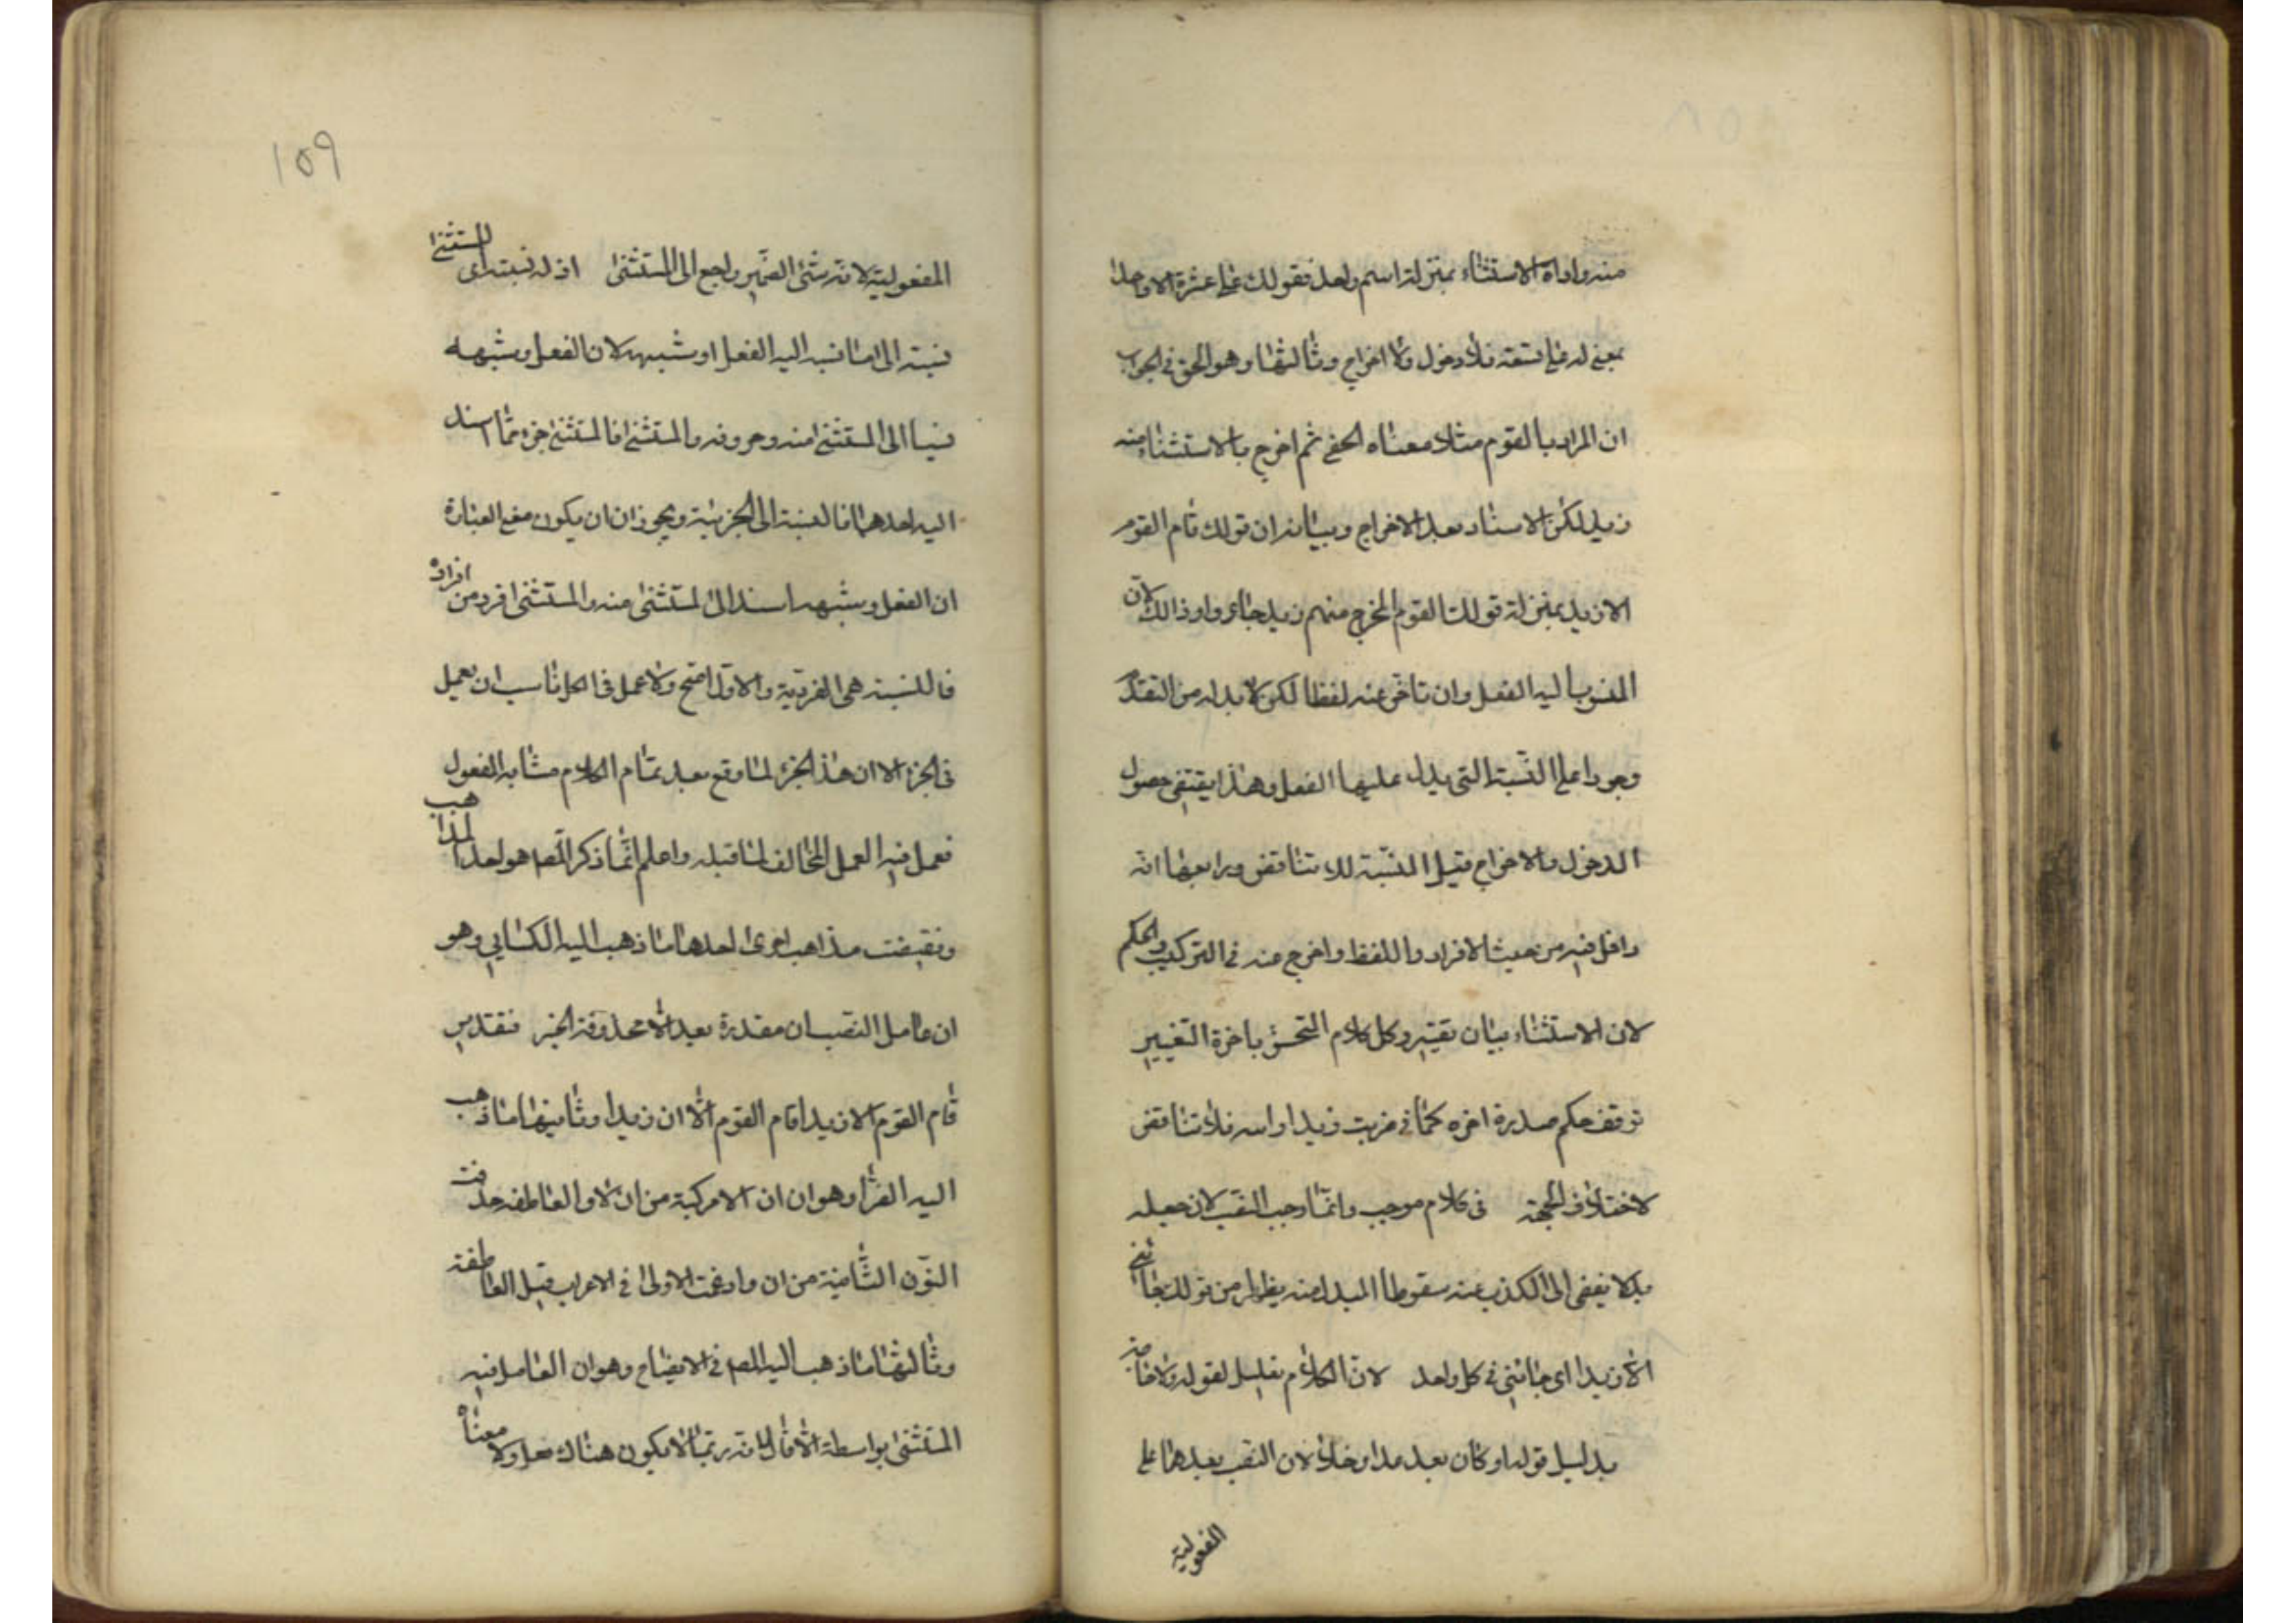 منه واداه الاستثناء بمنزلة اسم واحد فقولك على عشرة الا واحدا
بمعنى له على تسعة فلا دخول ولا اخراج وثالثها وهو الحق فى الجواب
ان المراد بالقوم مثلا معناه ثم اخرج بالاستثناء منه
زيد لكن الاسناد بعد الاخراج وبيانه ان قولك قام القوم
الا زيد بمنزلة قولك القوم المخرج منهم زيد لان
المنسوب اليه الفعل وان تاخر عنه لفظا لكن لا بد له من التقدم
وجودا على النسبة التى يدل عليها الفعل وهذا يقتضى حصول
الدخول والاخراج قبل النسبة للا تناقض ورابعها انه
داخل فيه من حيث الافراد واللفظ واخرج منه فى التركيب والحكم
لان الاستثناء بيان وكل كلام باخرة التغيير
توقف حكم اخره كما فى ضربت زيدا فلا تناقض
لاختلاف الجهة فى كلام موجب وانما وجب النصب لان جعله
بدلا يفضى الى الكذب عنه سقوط المبدل منه من قولك جائنى
الا زيدا اى جائنى كل واحد لان الكلام لقوله
بدليل قوله او كان بعد عدا وخلا لان النصب بعدهما على
المفعولية
١٥٩
المفعولية لانه الضمير راجع الى المستثنى اذ له نسبة اى للمستثنى
نسبة الى ما نسب اليه الفعل او شبهه لان الفعل وشبهه
نسبا الى المستثنى منه وحروفه والمستثنى فالمستثنى جزء مما اسند
اليه احدهما فالنسبة الى الجزئية ويجوز ان يكون معنى العبارة
ان الفعل وشبهه اسند الى المستثنى منه والمستثنى فرد من افراده
فالنسبة هى الفردية والاول اصح ولا عمل فى الكل ناسب ان يعمل
فى الجزء الا ان هذا الجزء لما وقع بعد تمام الكلام مشابه المفعول
فعمل فيه العمل المخالف لما قبله واعلم انما ذكر المص هو احد المذاهب
مذاهب اخرى احدها ما ذهب اليه الكسايى وهو
ان عامل النصب ان مقدرة بعد الا محذوفة الخبر فتقدير
قام القوم الا زيدا قام القوم الا ان زيدا وثانيها ما ذهب
اليه الفرا وهو ان الا مركبة من ان ولا العاطفة حذفت
النون الثانية من ان وادغمت الاولى فى الاعراب قبل العاطفة
وثالثها ما ذهب اليه المص فى الايضاح وهو ان العامل فيه
المستثنى بواسطة الا قال لانه ربما لا يكون هناك فعل ولا معناه